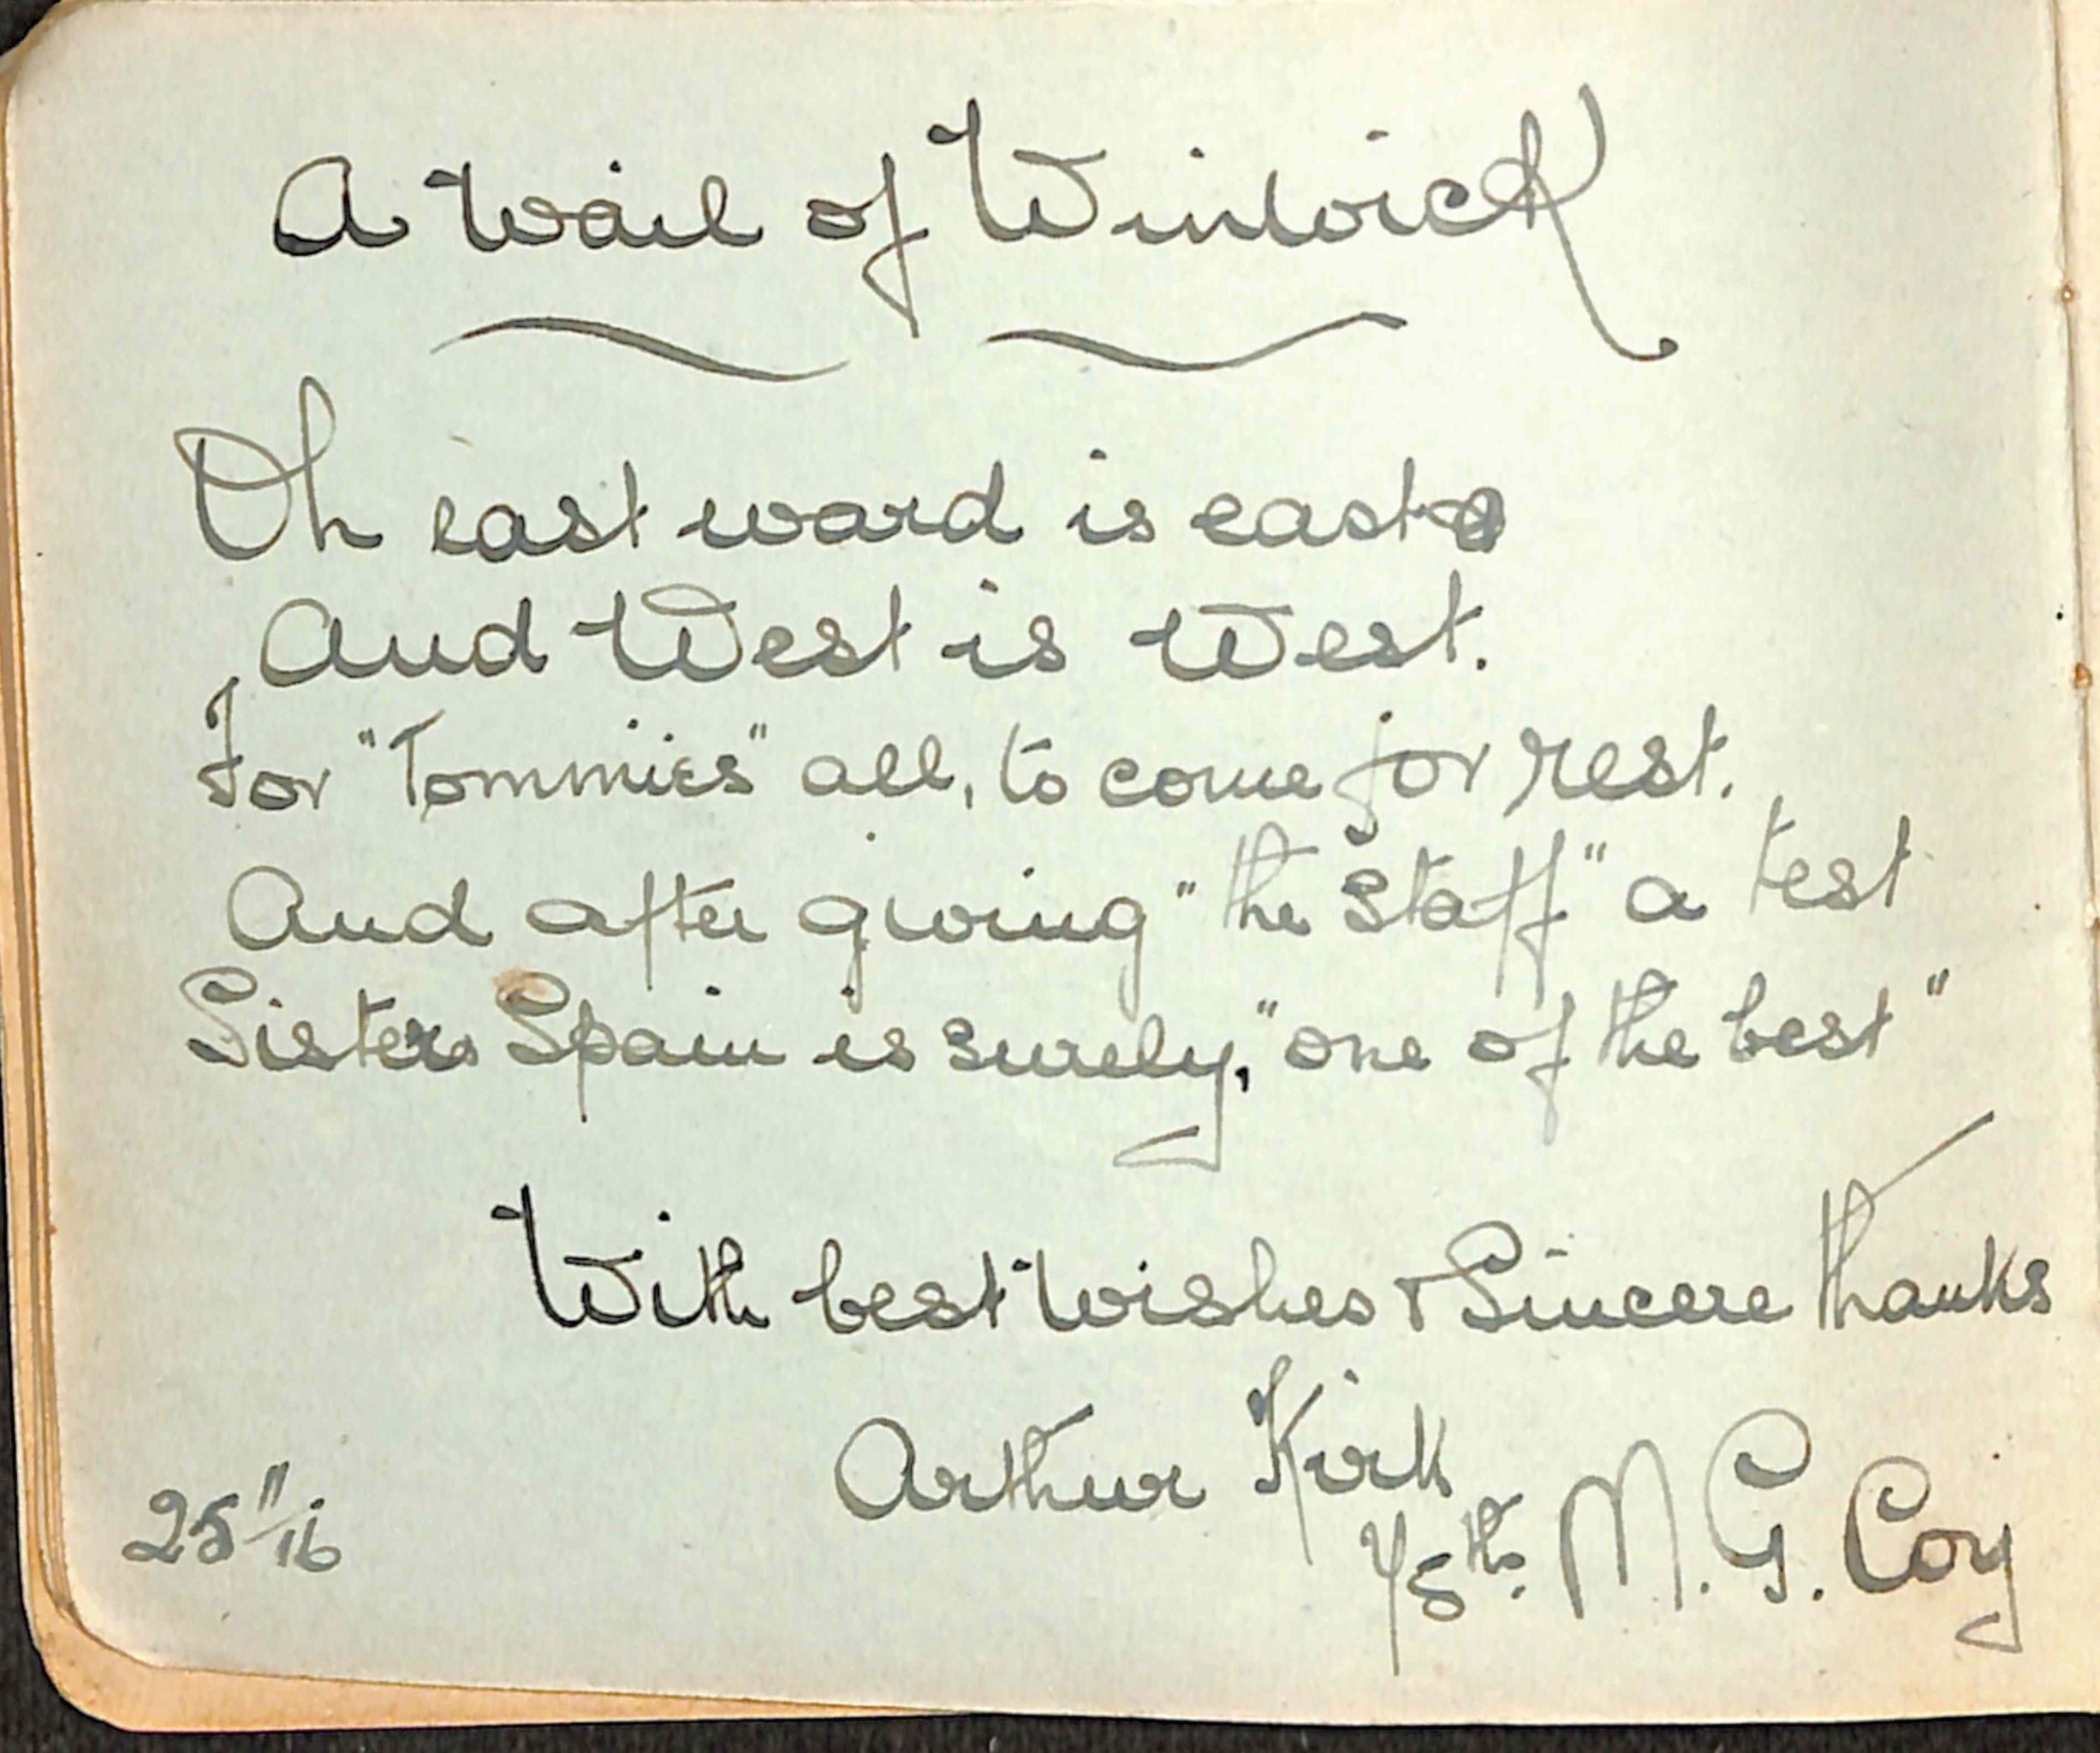 A Wail of Winwick
Oh east ward is east
And West is West.
For "Tommies" all, to come for rest.
And after giving "the Staff" a test
Sisters Spain is surely, "one of the best"
With best wishes & Sincere thanks
Arthur Kirk
M. G. Coy
25/11/16